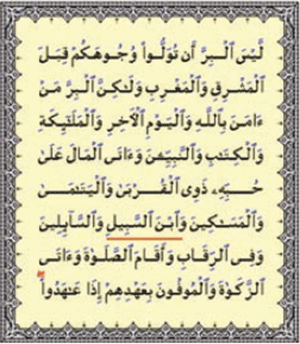 لَّيْسَ ٱلْبِرَّ أَن تُوَلُّوا۟ وُجُوهَكُمْ قِبَلَ
ٱلْمَشْرِقِ وَٱلْمَغْرِبِ وَلَٰكِنَّ ٱلْبِرَّ مَنْ
ءَامَنَ بِٱللَّهِ وَٱلْيَوْمِ ٱلْءَاخِرِ وَٱلْمَلَٰٓئِكَةِ
وَٱلْكِتَٰبِ وَٱلنَّبِيِّـۧنَ وَءَاتَى ٱلْمَالَ عَلَىٰ
حُبِّهِۦ ذَوِى ٱلْقُرْبَىٰ وَٱلْيَتَٰمَىٰ
وَٱلْمَسَٰكِينَ وَٱبْنَ ٱلسَّبِيلِ وَٱلسَّآئِلِينَ
وَفِى ٱلرِّقَابِ وَأَقَامَ ٱلصَّلَوٰةَ وَءَاتَى
ٱلزَّكَوٰةَ وَٱلْمُوفُونَ بِعَهْدِهِمْ إِذَا عَٰهَدُوا۟ۖ